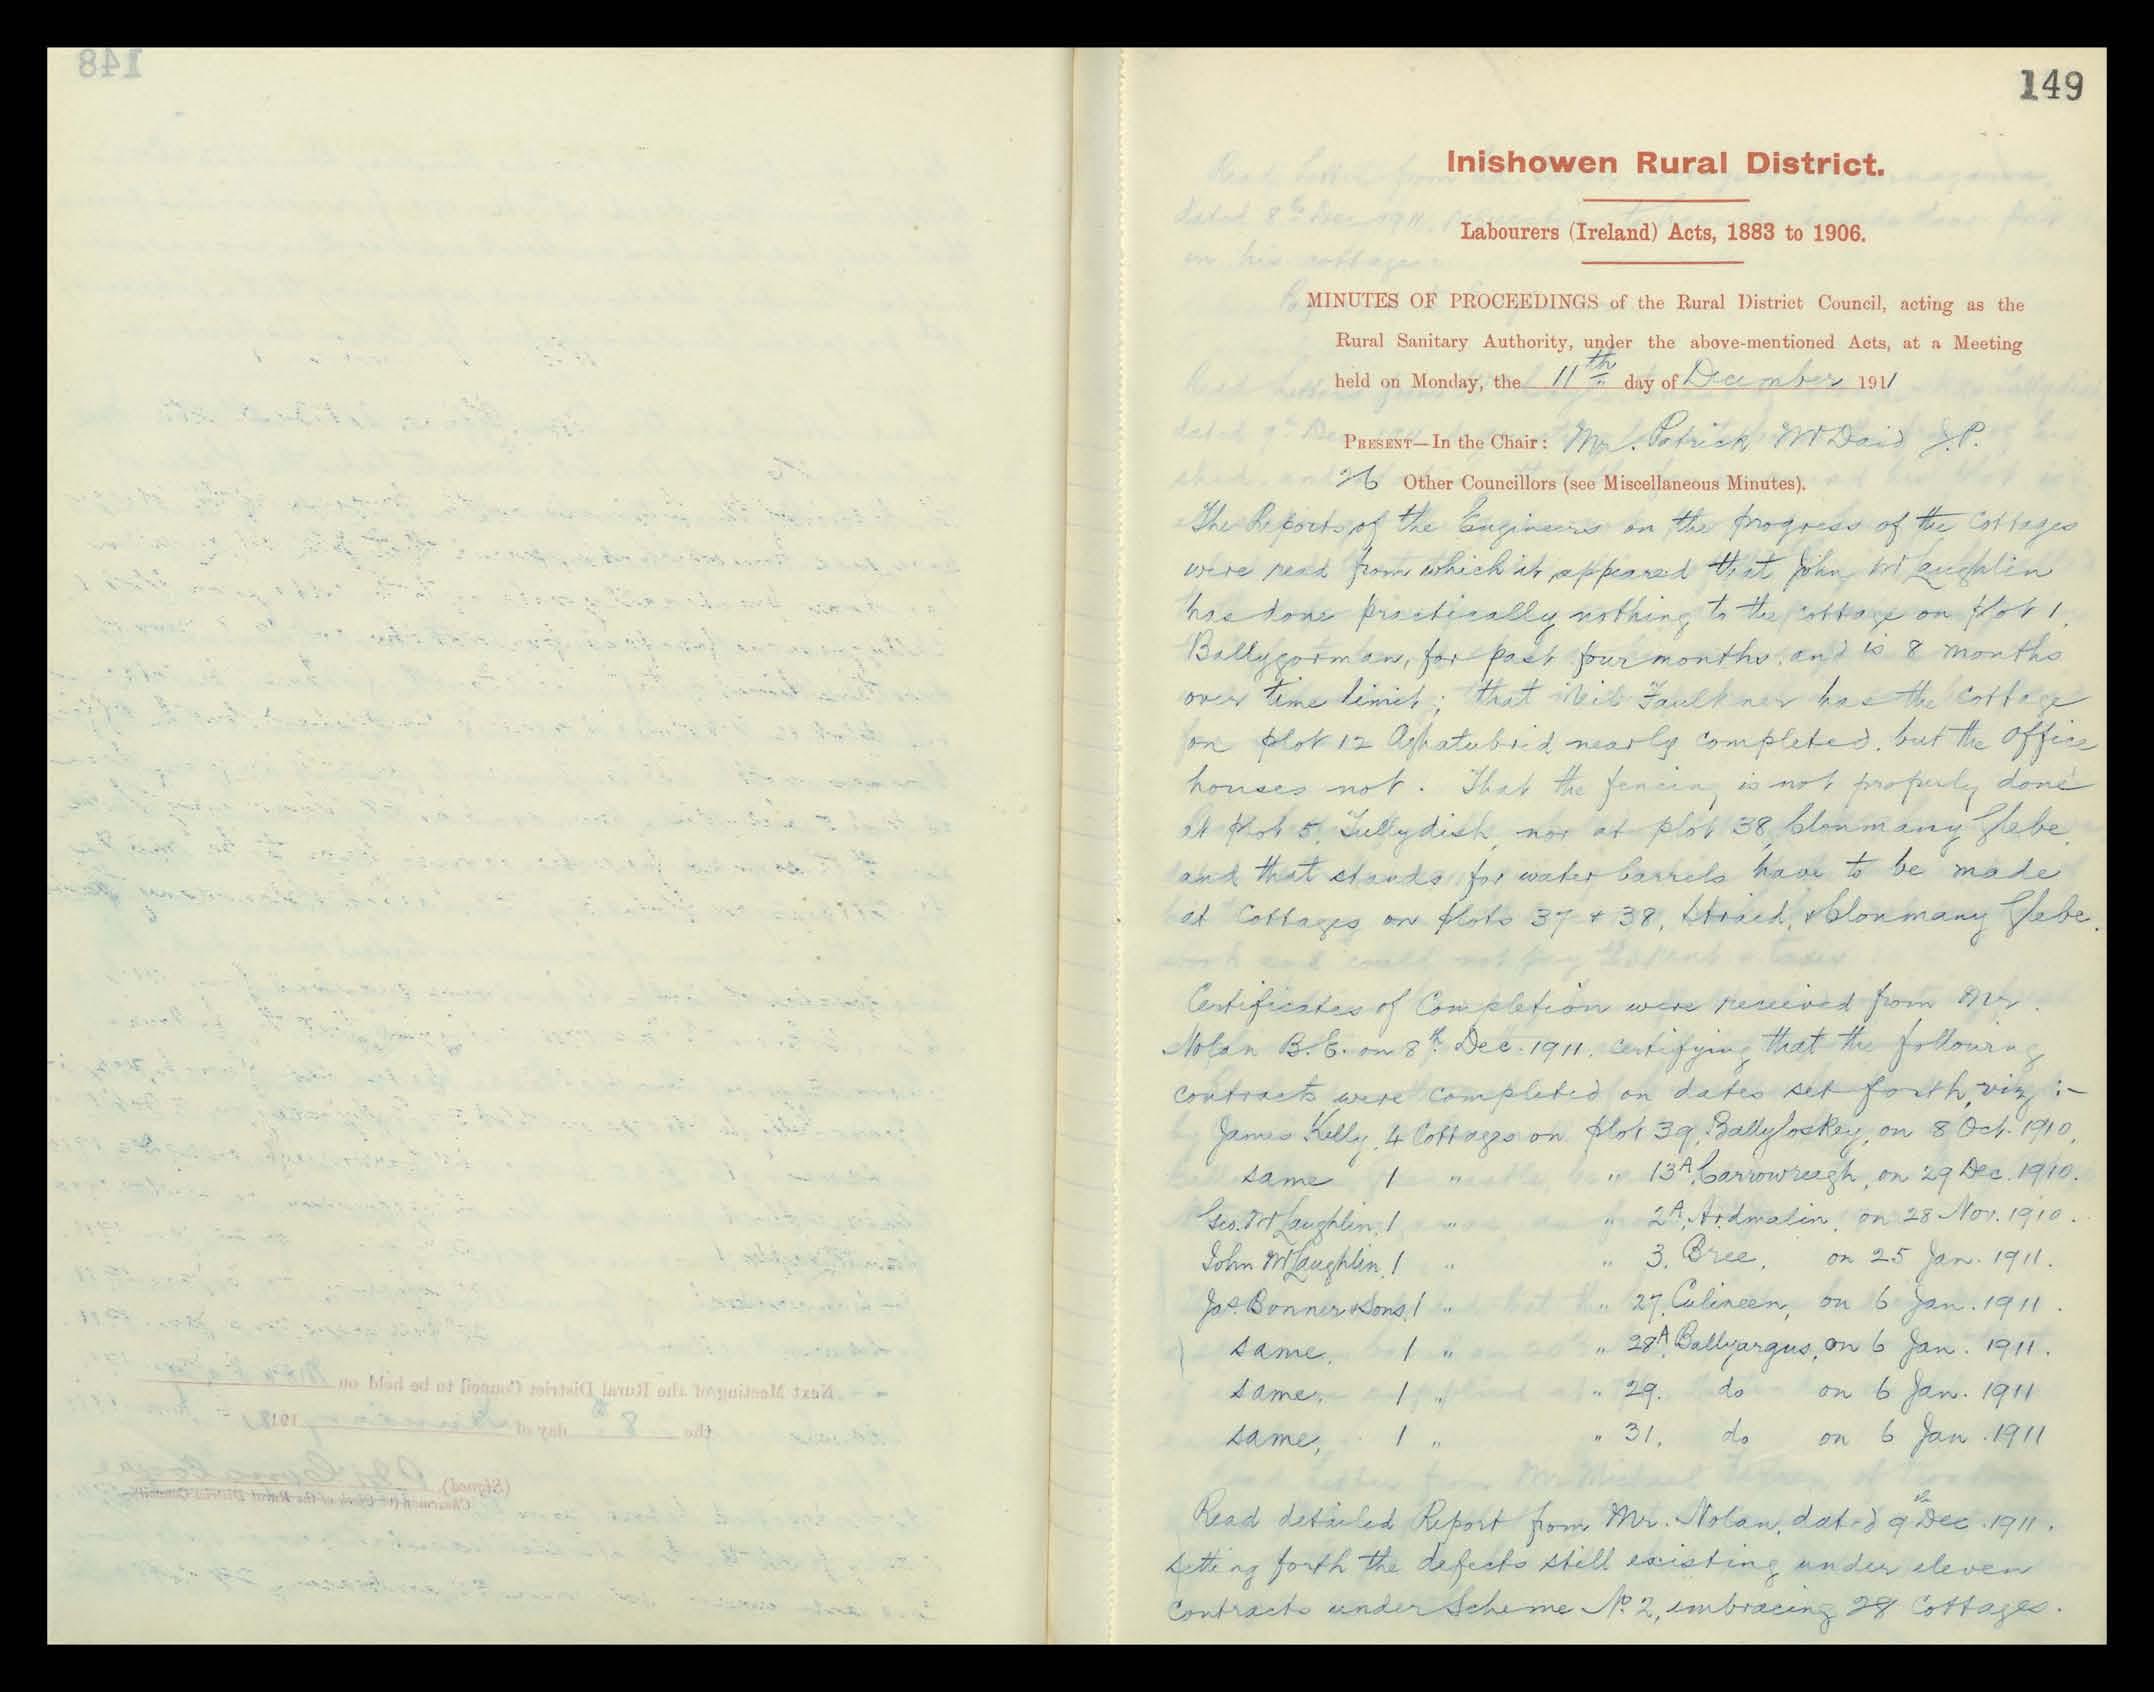 149
Inishowen Rural District.
Labourers (Ireland) Acts, 1883 to 1906.
MINUTES OF PROCEEDINGS of the Rural District Council, acting as the
Rural Sanitary Authority, under the above-mentioned Acts, at a Meeting
held on Monday, the 11th day of December 1911
PRESENT—In the Chair: Mr. Patrick McDaid J.P.
26 Other Councillors (see Miscellaneous Minutes).
The Reports of the Engineers on the progress of the Cottages
were read from which it appeared that John McLaughlin
has done practically nothing to the cottage on plot 1,
Ballygorman, for past four months, and is 8 months
over time limit; that Neil Faulkner has the cottage
on plot 12 Aghatubrid nearly completed, but the office
houses not. That the fencing is not properly done
at plot 5, Tullydish, nor at plot 38, Clonmany Glebe,
and that stands for water barrels have to be made
at Cottages on plots 37 & 38, Straid, & Clonmany Glebe.
Certificates of Completion were received from Mr.
Nolan B.E. on 8th Dec. 1911, certifying that the following
contracts were completed on dates set forth, viz:-
by James Kelly, 4 Cottages on plot 39, Ballyloskey, on 8 Oct. 1910,
same 1 " " 13A, Carrowreagh, on 29 Dec. 1910.
Geo. McLaughlin, 1 " " 2A, Ardmalin, on 28 Nov. 1910.
John McLaughlin, 1 " " 3, Bree, on 25 Jan. 1911.
Jas. Bonner & Sons, 1 " " 27, Culineen, on 6 Jan. 1911.
same, 1 " " 28A, Ballyargus, on 6 Jan. 1911.
same, 1 " " 29. do on 6 Jan. 1911
same, 1 " " 31, do on 6 Jan. 1911
Read detailed Report from Mr. Nolan, dated 9th Dec. 1911.
setting forth the defects still existing under eleven
contracts under Scheme No. 2, embracing 28 Cottages.